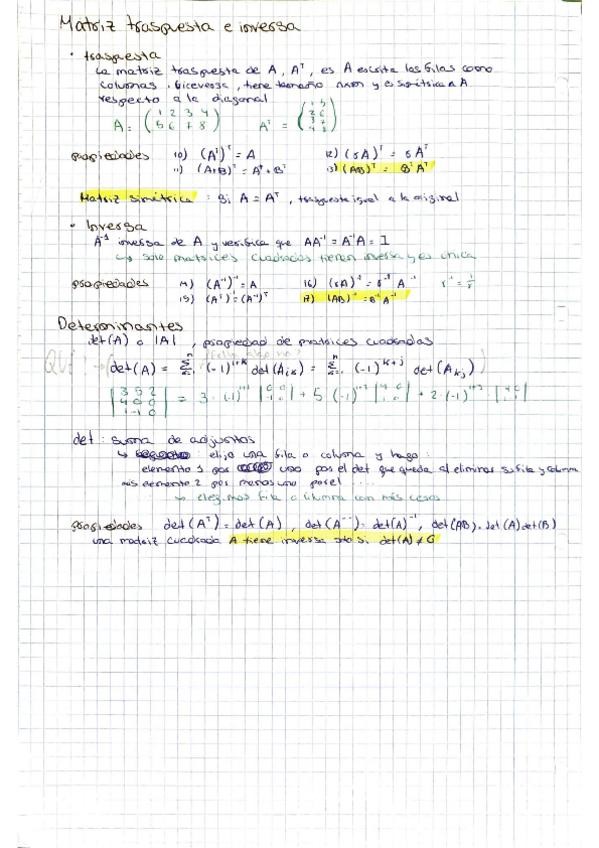 Matriz traspuesta e inversa
· traspuesta
La matriz traspuesta de A, Aᵀ, es A escrita las filas como
columnas, bicevessa, tiene tamaño nxm y es simétrica A
respecto a la diagonal
A = (1 2 3 4 / 5 6 7 8) Aᵀ = (1 5 / 2 6 / 3 7 / 4 8)
propiedades 10) (Aᵀ)ᵀ = A 12) (rA)ᵀ = rAᵀ
11) (A+B)ᵀ = Aᵀ + Bᵀ 13) (AB)ᵀ = BᵀAᵀ
Matriz simétrica : Si A = Aᵀ, traspuesta igual a la original
· Inversa
A⁻¹ inversa de A y verifica que AA⁻¹ = A⁻¹A = I
↳ solo matrices cuadradas tienen inversa y es única
propiedades 14) (A⁻¹)⁻¹ = A 16) (rA)⁻¹ = r⁻¹A⁻¹ r⁻¹ = 1/r
15) (Aᵀ)⁻¹ = (A⁻¹)ᵀ 17) (AB)⁻¹ = B⁻¹A⁻¹
Determinantes
det(A) o |A|, propiedad de matrices cuadradas
det(A) = Σ (-1)ⁱ⁺ᵏ det(Aᵢₖ) = Σ (-1)ᵏ⁺ʲ det(Aₖⱼ)
|3 5 2 / 4 0 0 / 1 -1 0| = 3·(-1)¹⁺¹ |0 0 / -1 0| + 5 (-1)¹⁺² |4 0 / 1 0| + 2·(-1)¹⁺³
det : suma de adjuntos
↳ : elijo una fila o columna y hago :
elemento 1 por uno por el det que queda al eliminar su fila y columna
más elemento 2 por menos uno por el ....
↳ elegimos fila o columna con más ceros
propiedades det(Aᵀ) = det(A), det(A⁻¹) = det(A)⁻¹, det(AB) = det(A)det(B)
una matriz cuadrada A tiene inversa solo si det(A) ≠ 0